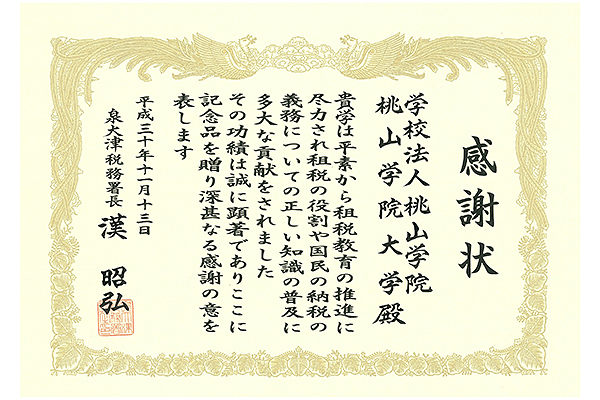 感謝状
学校法人桃山学院
桃山学院大学殿
貴学は平素から租税教育の推進に
尽力され租税の役割や国民の納税の
義務についての正しい知識の普及に
多大な貢献をされました
その功績は誠に顕著でありここに
記念品を贈り深甚なる感謝の意を
表します
平成三十年十一月十三日
泉大津税務署長 漢 昭弘